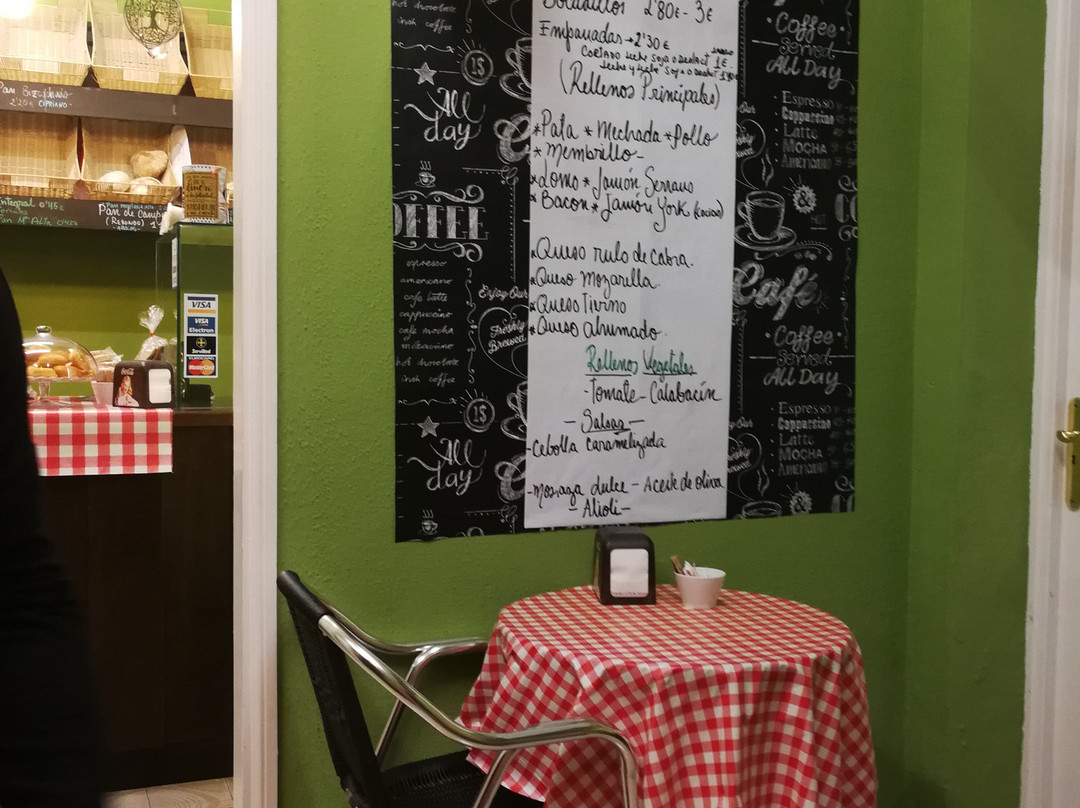 hot chocolate
irish coffee
All
day
15
COFFEE
espresso
americano
cafe latte
cappuccino
cafe mocha
hot chocolate
irish coffee
Enjoy Our
Freshly
Brewed
15
All
day
Bocadillos 2'80€ - 3€
Empanadas → 2'30€
(Rellenos Principales)
* Pata * Mechada * Pollo
* Membrillo -
* Lomo * Jamón Serrano
* Bacon * Jamón York (cocido)
* Queso rulo de cabra.
* Queso Mozarella.
* Queso Tierno
* Queso ahumado.
Rellenos Vegetales
- Tomate - Calabacín
- Salsas -
- Cebolla caramelizada
- Mostaza dulce - Aceite de oliva
- Alioli -
Coffee
Served
All Day
Espresso
Cappuccino
Latte
MOCHA
Americano
&
Café
Coffee
Served
All Day
Espresso
Cappuccino
Latte
MOCHA
Americano
&
2'20€ CIPRIANO
Integral 0'45€
Pan de Campo
(REDONDO)
VISA
VISA
Electron
Servired
MasterCard
Coca-Cola